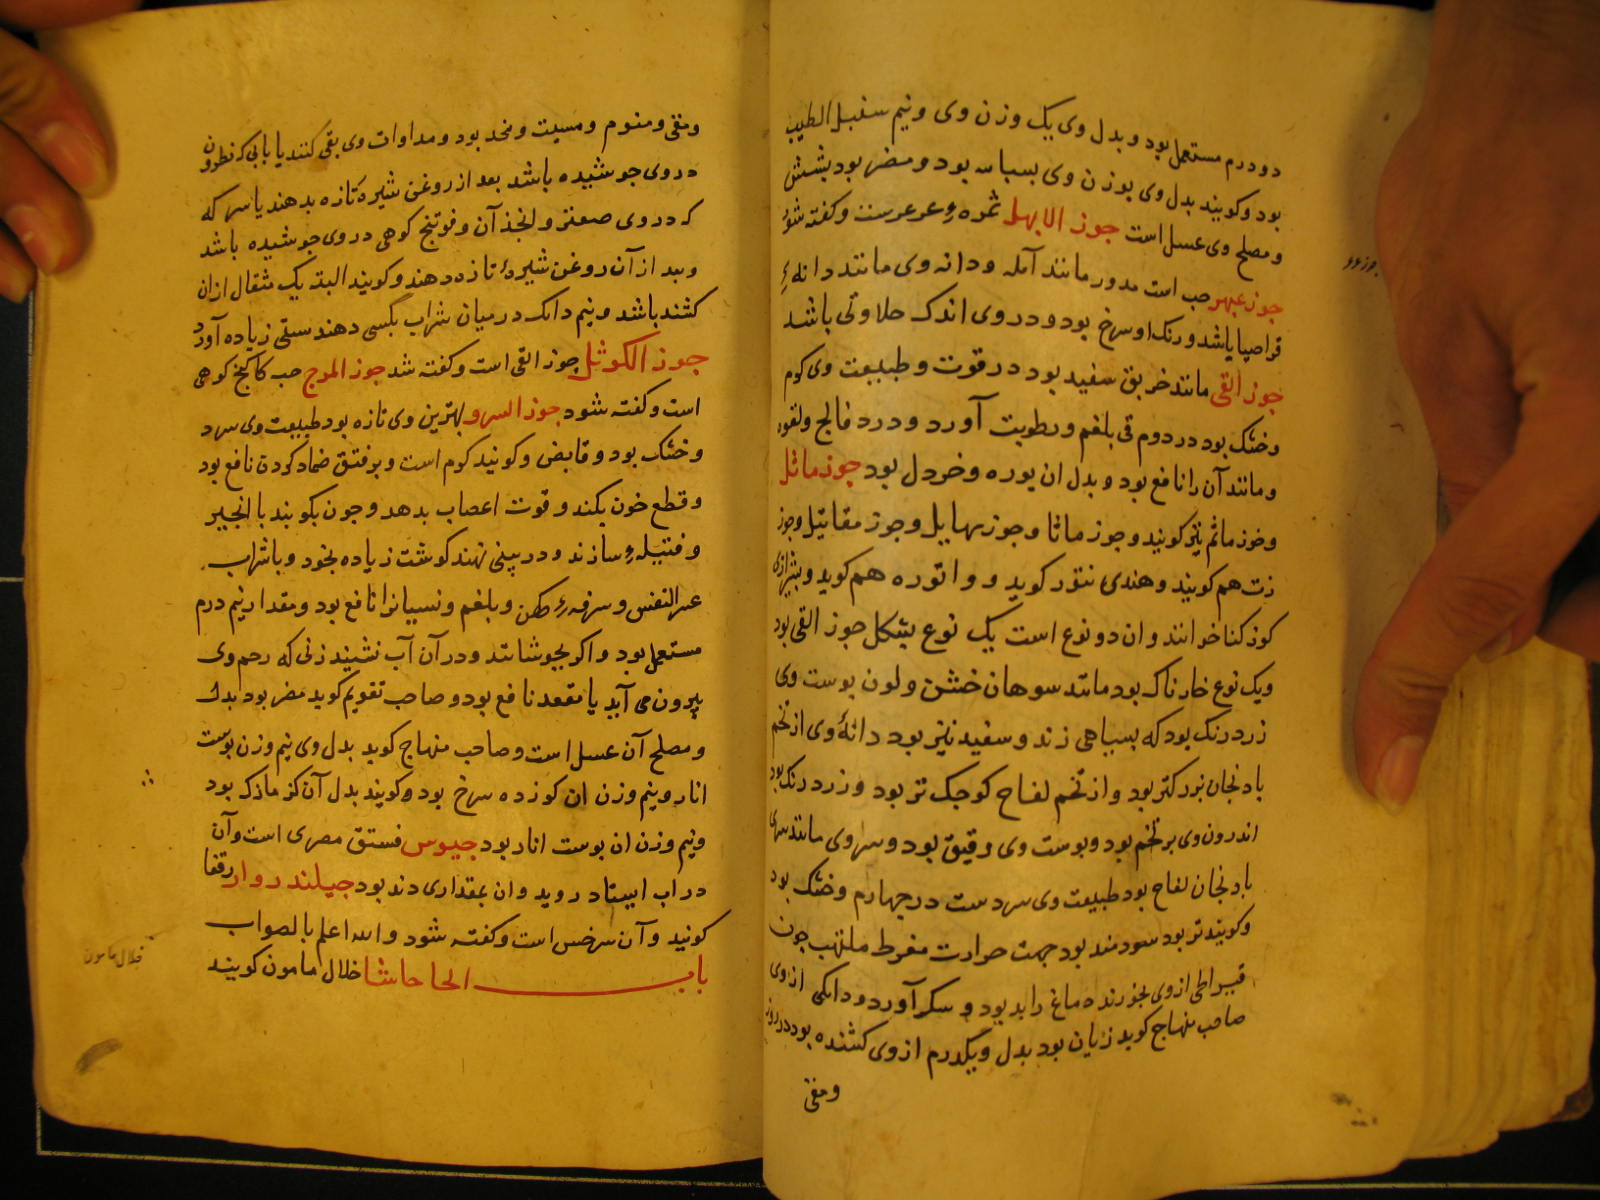 دو درم مستعمل بود و بدل وی یک وزن وی و نیم سنبل الطیب
بود و کویند بدل وی بوزن وی بسباسه بود و مضر بود بشش
و مصلح وی عسل است جوز الابهل ثمره عرعرست و کفته شود
جوز عبهر حب است مدور مانند آمله و دانه وی مانند دانهٔ
قراصیا باشد و رنک او سرخ بود و در وی اندک حلاوتی باشد
جوز القی مانند خربق سفید بود در قوت و طبیعت وی کرم
و خشک بود در دوم قی بلغم و رطوبت آورد و درد فالج و لقوه
و مانند آن را نافع بود و بدل ان بوره و خردل بود جوز ماثل
و جوز ماثم نیز کویند و جوز ماثا و جوز مقاتیل و جوز
زت هم کویند و هندی تتور کوید و واتوره هم کوید و بشیرازی
کوز کنا خوانند و ان دو نوع است یک نوع بشکل جوز القی بود
و یک نوع خارناک بود مانند سوهان خشن و لون پوست وی
زرد رنک بود که بسیاهی زند و سفید نیز بود دانهٔ وی از تخم
بادنجان بزرکتر بود و از تخم لفاح کوجک تر بود و زرد رنک بود
اندرون وی بر تخم بود و پوست وی رقیق بود و سر وی مانند سر
بادنجان لفاح بود طبیعت وی سردست در چهارم و خشک بود
و کویند تر بود سودمند بود جهت حرارت مفرط ملتهب چون
قیراطی از وی بخورند دماغ را بد بود و سکر آورد و دانکی از وی
صاحب منهاج کوید زیان بود بدل و یکدرم از وی کشنده بود در روز
و مقی
جوز
و مقی و منوم و مسبت و مخد بود و مداوات وی بقی کنند یا بابی که نطرون
در وی جوشیده باشد بعد از روغن شیره تازه بدهند یا سرکه
که در وی صعتر و انخذان و فوتنج کوهی در وی جوشیده باشد
و بعد از آن روغن شیرهٔ تازه دهند و کویند البته یک مثقال از ان
کشنده باشد و نیم دانک در میان شراب بکسی دهند مستی زیاده آورد
جوز الکوثل جوز القی است و کفته شد جوز المرج حب کاکنج کوهی
است و کفته شود جوز السرو بهترین وی تازه بود طبیعت وی سرد
و خشک بود و قابض و کویند کرم است و بر فتق ضماد کردن نافع بود
و قطع خون بکند و قوت اعصاب بدهد و چون بکوبند با انجیر
و فتیلهٔ سازند و در بینی نهند کوشت زیاده بخورد و با شراب
عسر النفس و سرفهٔ کهن و بلغم و نسیان را نافع بود و مقدار نیم درم
مستعمل بود و اکر بجوشانند و در آن آب نشیند زنی که رحم وی
بیرون می آید یا مقعد نافع بود و صاحب تقویم کوید مضر بود بدل
و مصلح آن عسل است و صاحب منهاج کوید بدل وی نیم وزن پوست
انار و نیم وزن ان کوزده سرخ بود و کویند بدل آن کزمازک بود
و نیم وزن ان پوست انار بود جیوس فستق مصری است و آن
در اب ایستاد روید و ان بمقداری دند بود جیلندروار رقعا
کویند و آن سرخس است و کفته شود و الله اعلم بالصواب
باب الحا حاشا خلال مامون کویند
خلال مامون